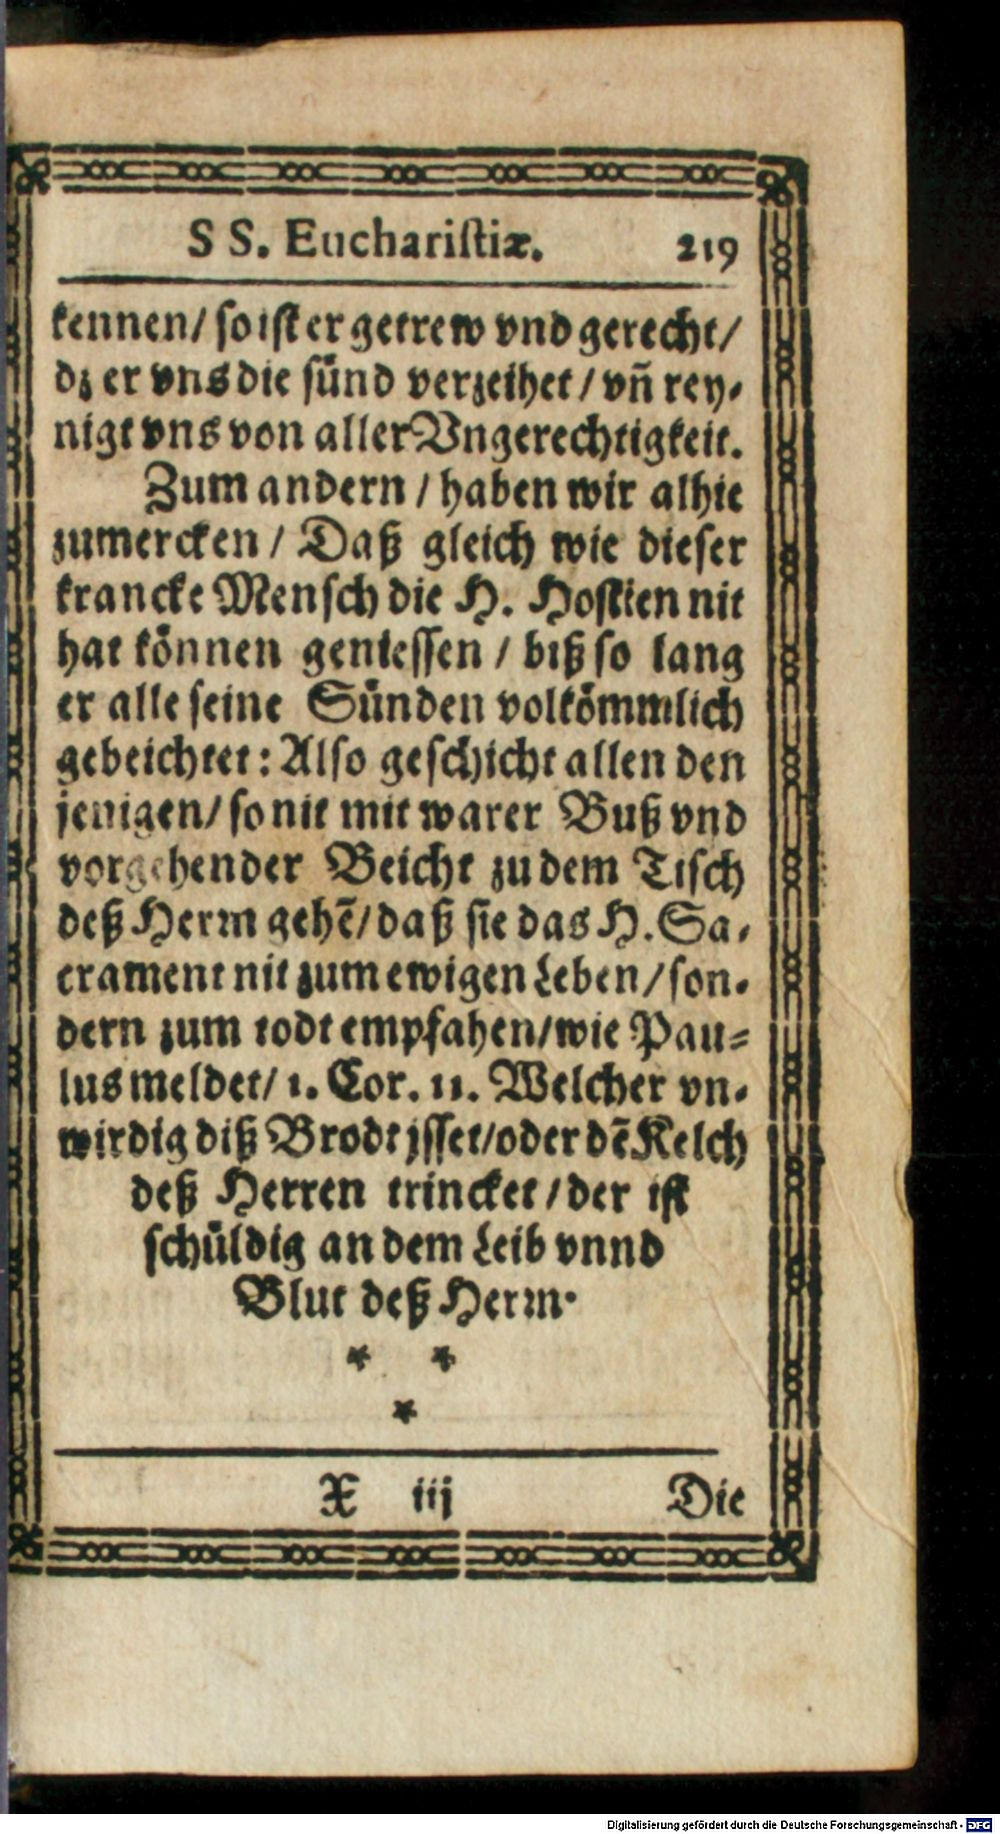 SS. Euchariſtiæ. 219
kennen/ ſo iſt er getrew vnd gerecht/
dz er vns die ſünd verzeihet / vñ rey-
nigt vns von aller Vngerechtigkeit.
Zum andern / haben wir alhie
zumercken / Daß gleich wie dieſer
krancke Menſch die H. Hoſtien nit
hat können genieſſen / biß ſo lang
er alle ſeine Sünden volkömmlich
gebeichtet: Alſo geſchicht allen den
jenigen/ ſo nit mit warer Buß vnd
vorgehender Beicht zu dem Tiſch
deß Herrn gehẽ/ daß ſie das H. Sa-
crament nit zum ewigen Leben/ ſon-
dern zum todt empfahen/ wie Pau-
lus meldet/ 1. Cor. 11. Welcher vn-
wirdig diß Brodt jſſet/ oder dẽ Kelch
deß Herren trincket / der iſt
ſchüldig an dem Leib vnnd
Blut deß Herrn.
* *
*
X iij Die
Digitalisierung gefördert durch die Deutsche Forschungsgemeinschaft - DFG